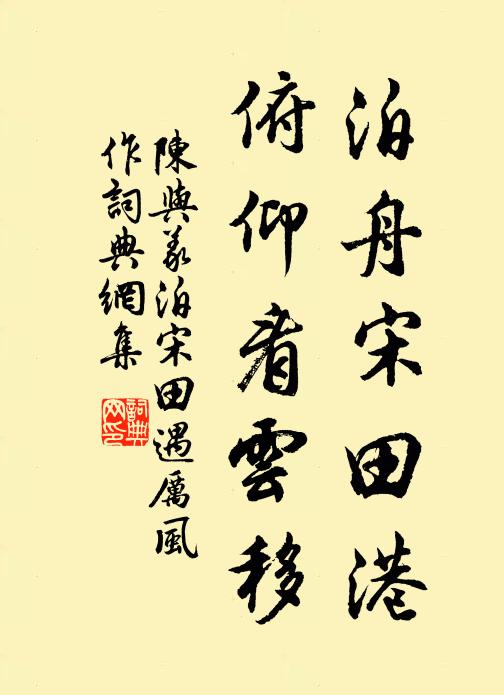 泊舟宋田港
俯仰看雲移
陳與義泊宋田遇厲風
作詞典網集
詞典
网印